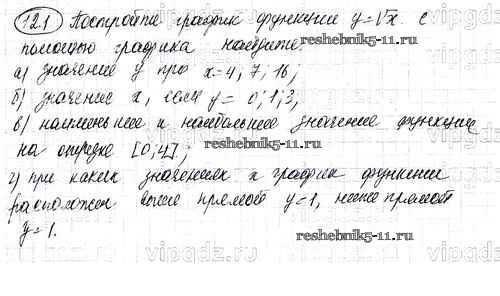 12.1 Постройте график функции y=√x. С
помощью графика найдите:
reshebnik5-11.ru
а) значение y при x=4; 7; 16;
б) значение x, если y= 0; 1; 3;
в) наименьшее и наибольшее значение функции
на отрезке [0;4];
reshebnik5-11.ru
г) при каких значениях x график функции
расположен выше прямой y=1, ниже прямой
y=1.
reshebnik5-11.ru